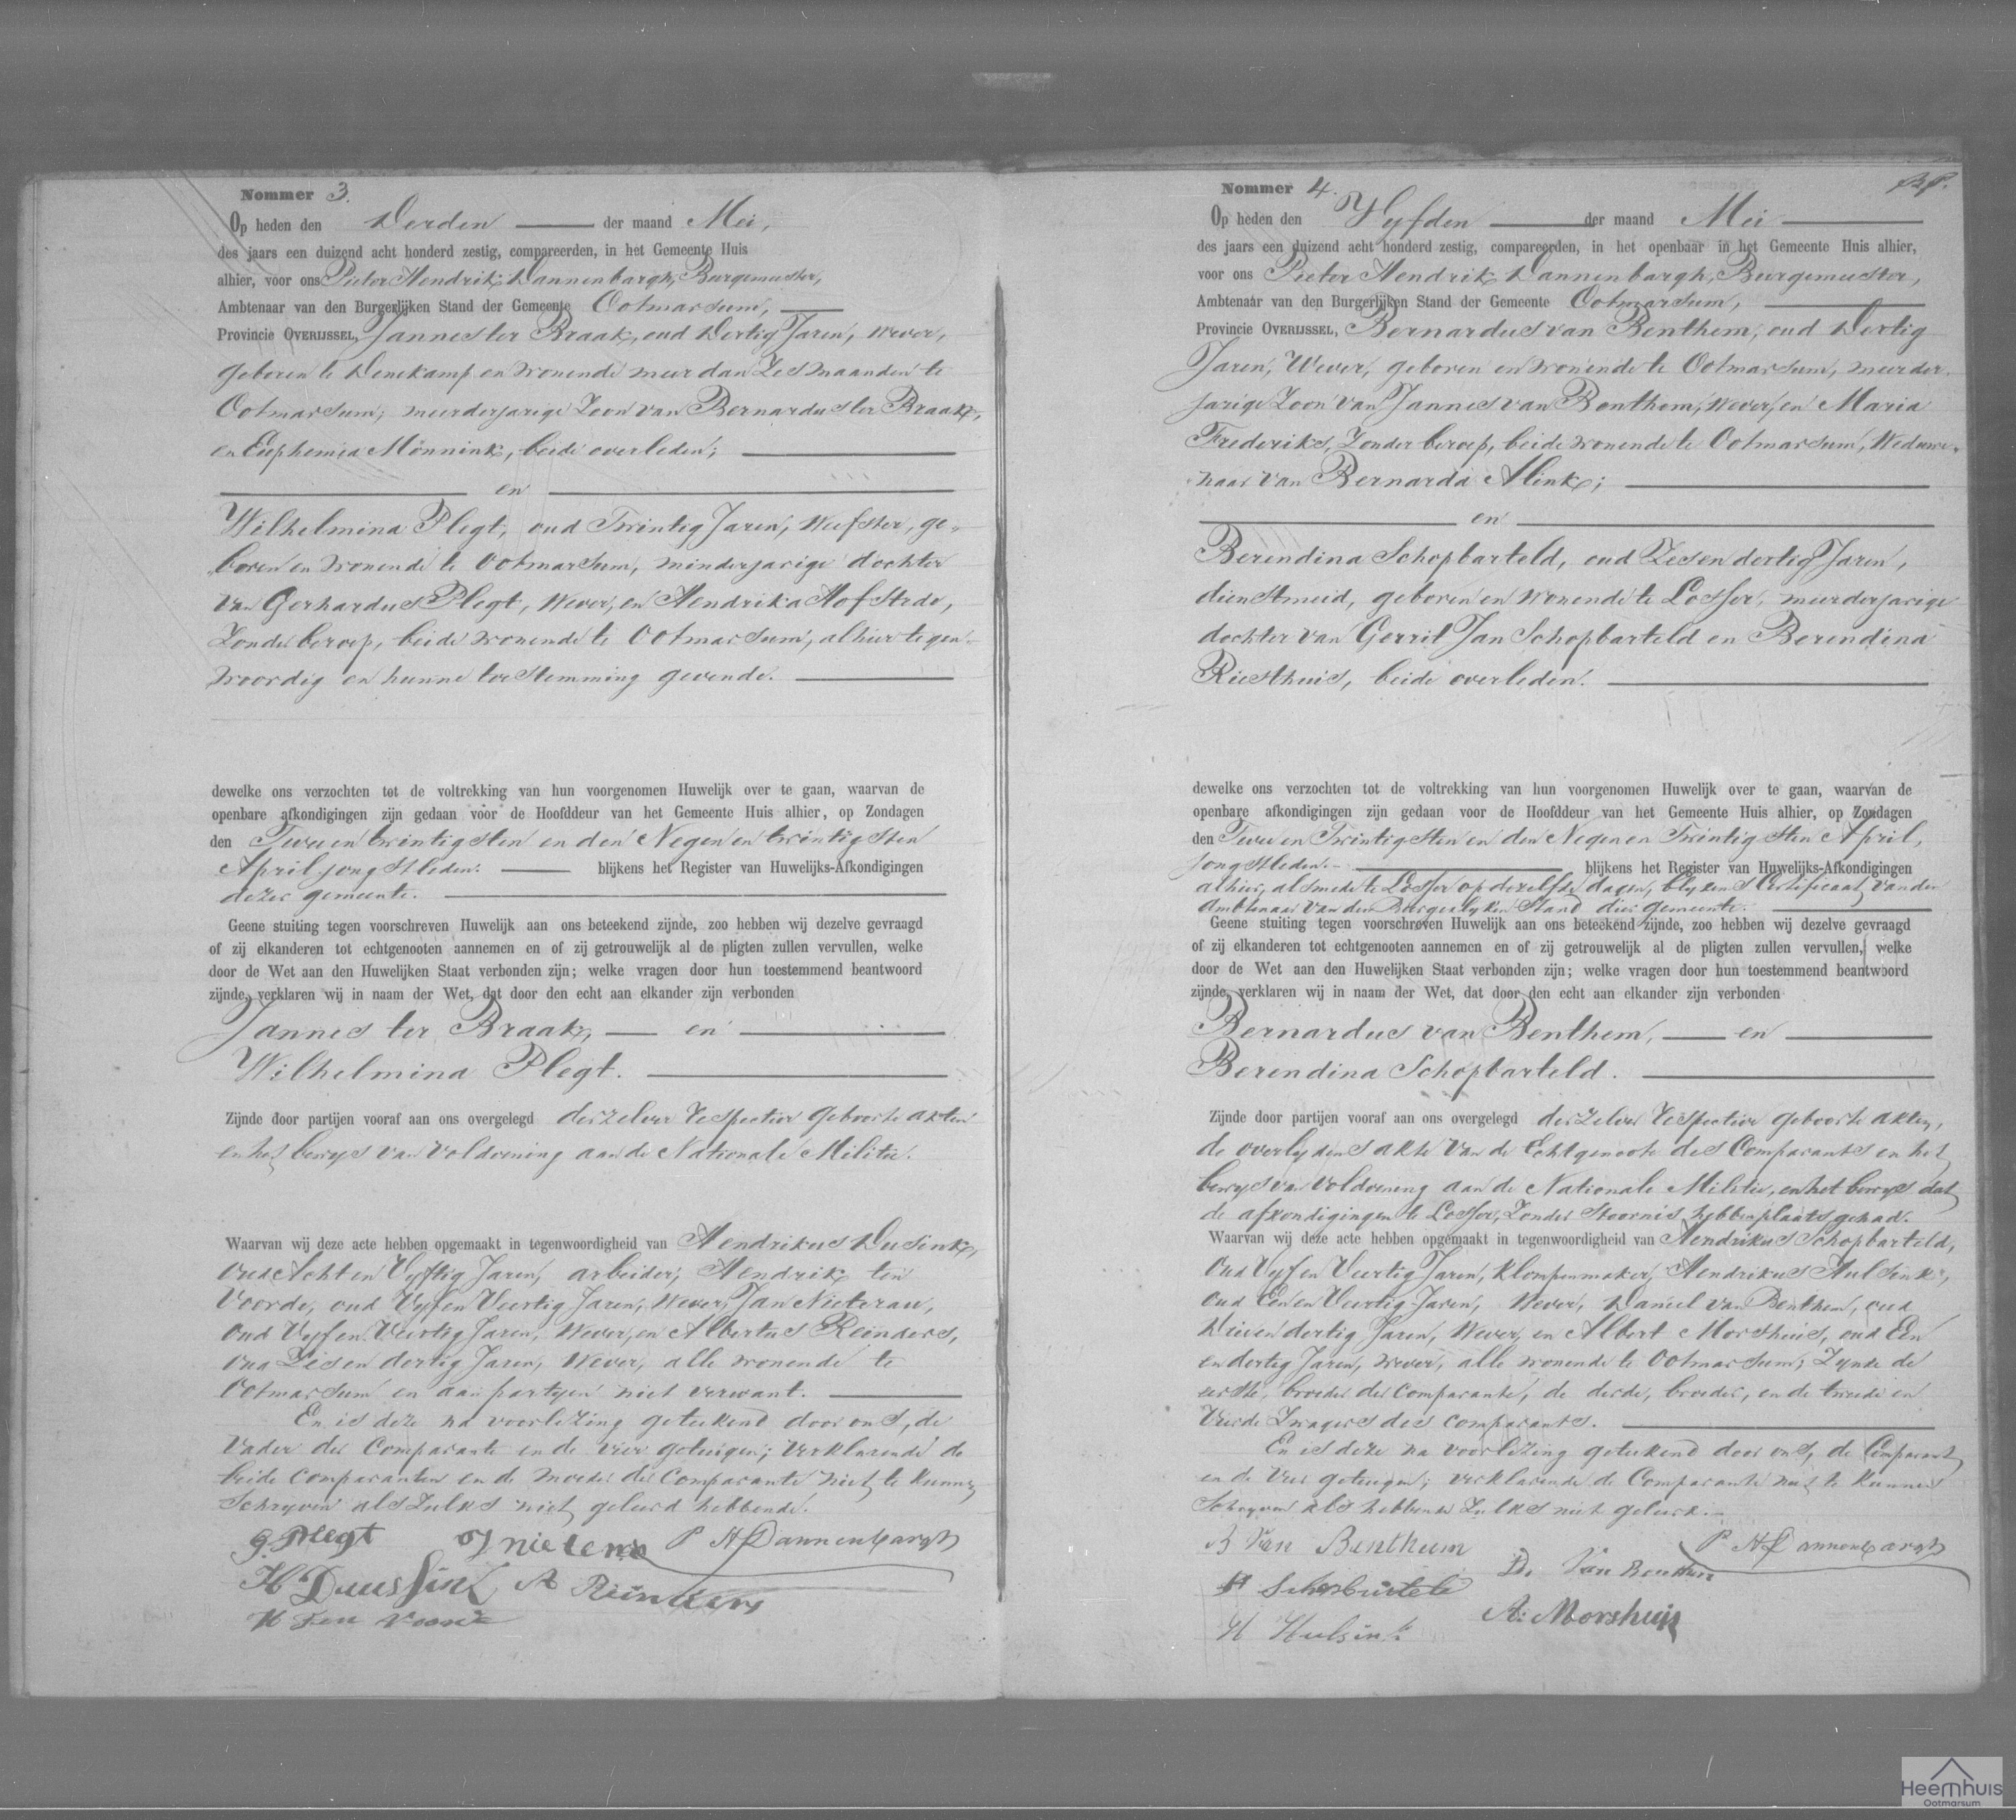 Nommer 3.
Op heden den Derden der maand Mei,
des jaars een duizend acht honderd zestig, compareerden, in het Gemeente Huis
alhier, voor ons Pieter Hendrik Dannenbargh, Burgemeester,
Ambtenaar van den Burgerlijken Stand der Gemeente Ootmarsum,
Provincie OVERIJSSEL, Jannes ter Braak, oud Dertig Jaren, Wever,
geboren te Denekamp en wonende meer dan Zes maanden te
Ootmarsum, meerderjarige Zoon van Bernardus ter Braak,
en Euphemia Mönnink, beide overleden;
en
Wilhelmina Plegt, oud Twintig Jaren, Weefster, ge-
boren en wonende te Ootmarsum, minderjarige dochter
van Gerhardus Plegt, Wever, en Hendrika Hofstede,
Zonder beroep, beide wonende te Ootmarsum, alhier tegen-
woordig en hunne toestemming gevende.
dewelke ons verzochten tot de voltrekking van hun voorgenomen Huwelijk over te gaan, waarvan de
openbare afkondigingen zijn gedaan voor de Hoofddeur van het Gemeente Huis alhier, op Zondagen
den Twee en twintigsten en den Negen en twintigsten
April jongstleden. blijkens het Register van Huwelijks-Afkondigingen
dezer gemeente.
Geene stuiting tegen voorschreven Huwelijk aan ons beteekend zijnde, zoo hebben wij dezelve gevraagd
of zij elkanderen tot echtgenooten aannemen en of zij getrouwelijk al de pligten zullen vervullen, welke
door de Wet aan den Huwelijken Staat verbonden zijn; welke vragen door hun toestemmend beantwoord
zijnde, verklaren wij in naam der Wet, dat door den echt aan elkander zijn verbonden
Jannes ter Braak, en
Wilhelmina Plegt.
Zijnde door partijen vooraf aan ons overgelegd derzelver respective geboorte akten
en het bewys van voldoening aan de Nationale Militie.
Waarvan wij deze acte hebben opgemaakt in tegenwoordigheid van Hendrikus Dusink,
oud Acht en Vyftig Jaren, arbeider, Hendrik ten
Voorde, oud Vyf en Veertig Jaren, Wever, Jan Nieterau,
oud Vyf en Veertig Jaren, Wever, en Albertus Reinders,
oud Zes en dertig Jaren, Wever, alle wonende te
Ootmarsum en aan partyen niet verwant.
En is deze na voorlezing geteekend door ons, de
Vader der Comparante en de vier getuigen; verklarende de
beide comparanten en de moeder der Comparante niet te kunnen
Schryven als zulks niet geleerd hebbende.
G. Plegt J nieterau P H Dannenbargh
H Duussink A Reinders
H ten voorde
Nommer 4.
Op heden den Vyfden der maand Mei
des jaars een duizend acht honderd zestig, compareerden, in het openbaar in het Gemeente Huis alhier,
voor ons Pieter Hendrik Dannenbargh, Burgemeester,
Ambtenaar van den Burgerlijken Stand der Gemeente Ootmarsum,
Provincie OVERIJSSEL, Bernardus van Benthem, oud Dertig
Jaren, Wever, geboren en wonende te Ootmarsum, meerder-
jarige Zoon van Jannes van Benthem, Wever, en Maria
Frederiks, Zonder beroep, beide wonende te Ootmarsum, Weduwe-
naar van Bernarda Alink;
en
Berendina Schopbarteld, oud Zes en dertig Jaren,
dienstmeid, geboren en wonende te Losser, meerderjarige
dochter van Gerrit Jan Schopbarteld en Berendina
Riesthuis, beide overleden.
dewelke ons verzochten tot de voltrekking van hun voorgenomen Huwelijk over te gaan, waarvan de
openbare afkondigingen zijn gedaan voor de Hoofddeur van het Gemeente Huis alhier, op Zondagen
den Twee en Twintigsten en den Negen en Twintigsten April,
jongstleden. blijkens het Register van Huwelijks-Afkondigingen
alhier, alsmede te Losser op dezelfde dagen, blykens Certificaat van den
Ambtenaar van den Burgerlyken Stand dier gemeente.
Geene stuiting tegen voorschreven Huwelijk aan ons beteekend zijnde, zoo hebben wij dezelve gevraagd
of zij elkanderen tot echtgenooten aannemen en of zij getrouwelijk al de pligten zullen vervullen, welke
door de Wet aan den Huwelijken Staat verbonden zijn; welke vragen door hun toestemmend beantwoord
zijnde, verklaren wij in naam der Wet, dat door den echt aan elkander zijn verbonden
Bernardus van Benthem, en
Berendina Schopbarteld.
Zijnde door partijen vooraf aan ons overgelegd derzelver respective geboorte akten,
de overlydensakte van de Echtgenoote des Comparants en het
bewys van voldoening aan de Nationale Militie, en het bewys dat
de afkondigingen te Losser, Zonder Stoornis hebben plaats gehad.
Waarvan wij deze acte hebben opgemaakt in tegenwoordigheid van Hendrikus Schopbarteld,
oud Vyf en Veertig Jaren, klompenmaker, Hendrikus Hulsink,
oud Een en Veertig Jaren, Wever, Daniel van Benthem, oud
Drie en dertig Jaren, Wever, en Albert Morshuis, oud Een
en dertig Jaren, wever, alle wonende te Ootmarsum; Zynde de
eerste, broeder der Comparante, de derde, broeder, en de tweede en
Vierde Zwagers des comparants.
En is deze na voorlezing geteekend door ons, de Comparant
en de vier getuigen; verklarende de Comparante niet te kunnen
Schryven als hebbende Zulks niet geleerd.
B Van Benthem P H Dannenbargh
H Schopbarteld D. Van Benthem
H Hulsink A: Morshuis
Heemhuis
Ootmarsum